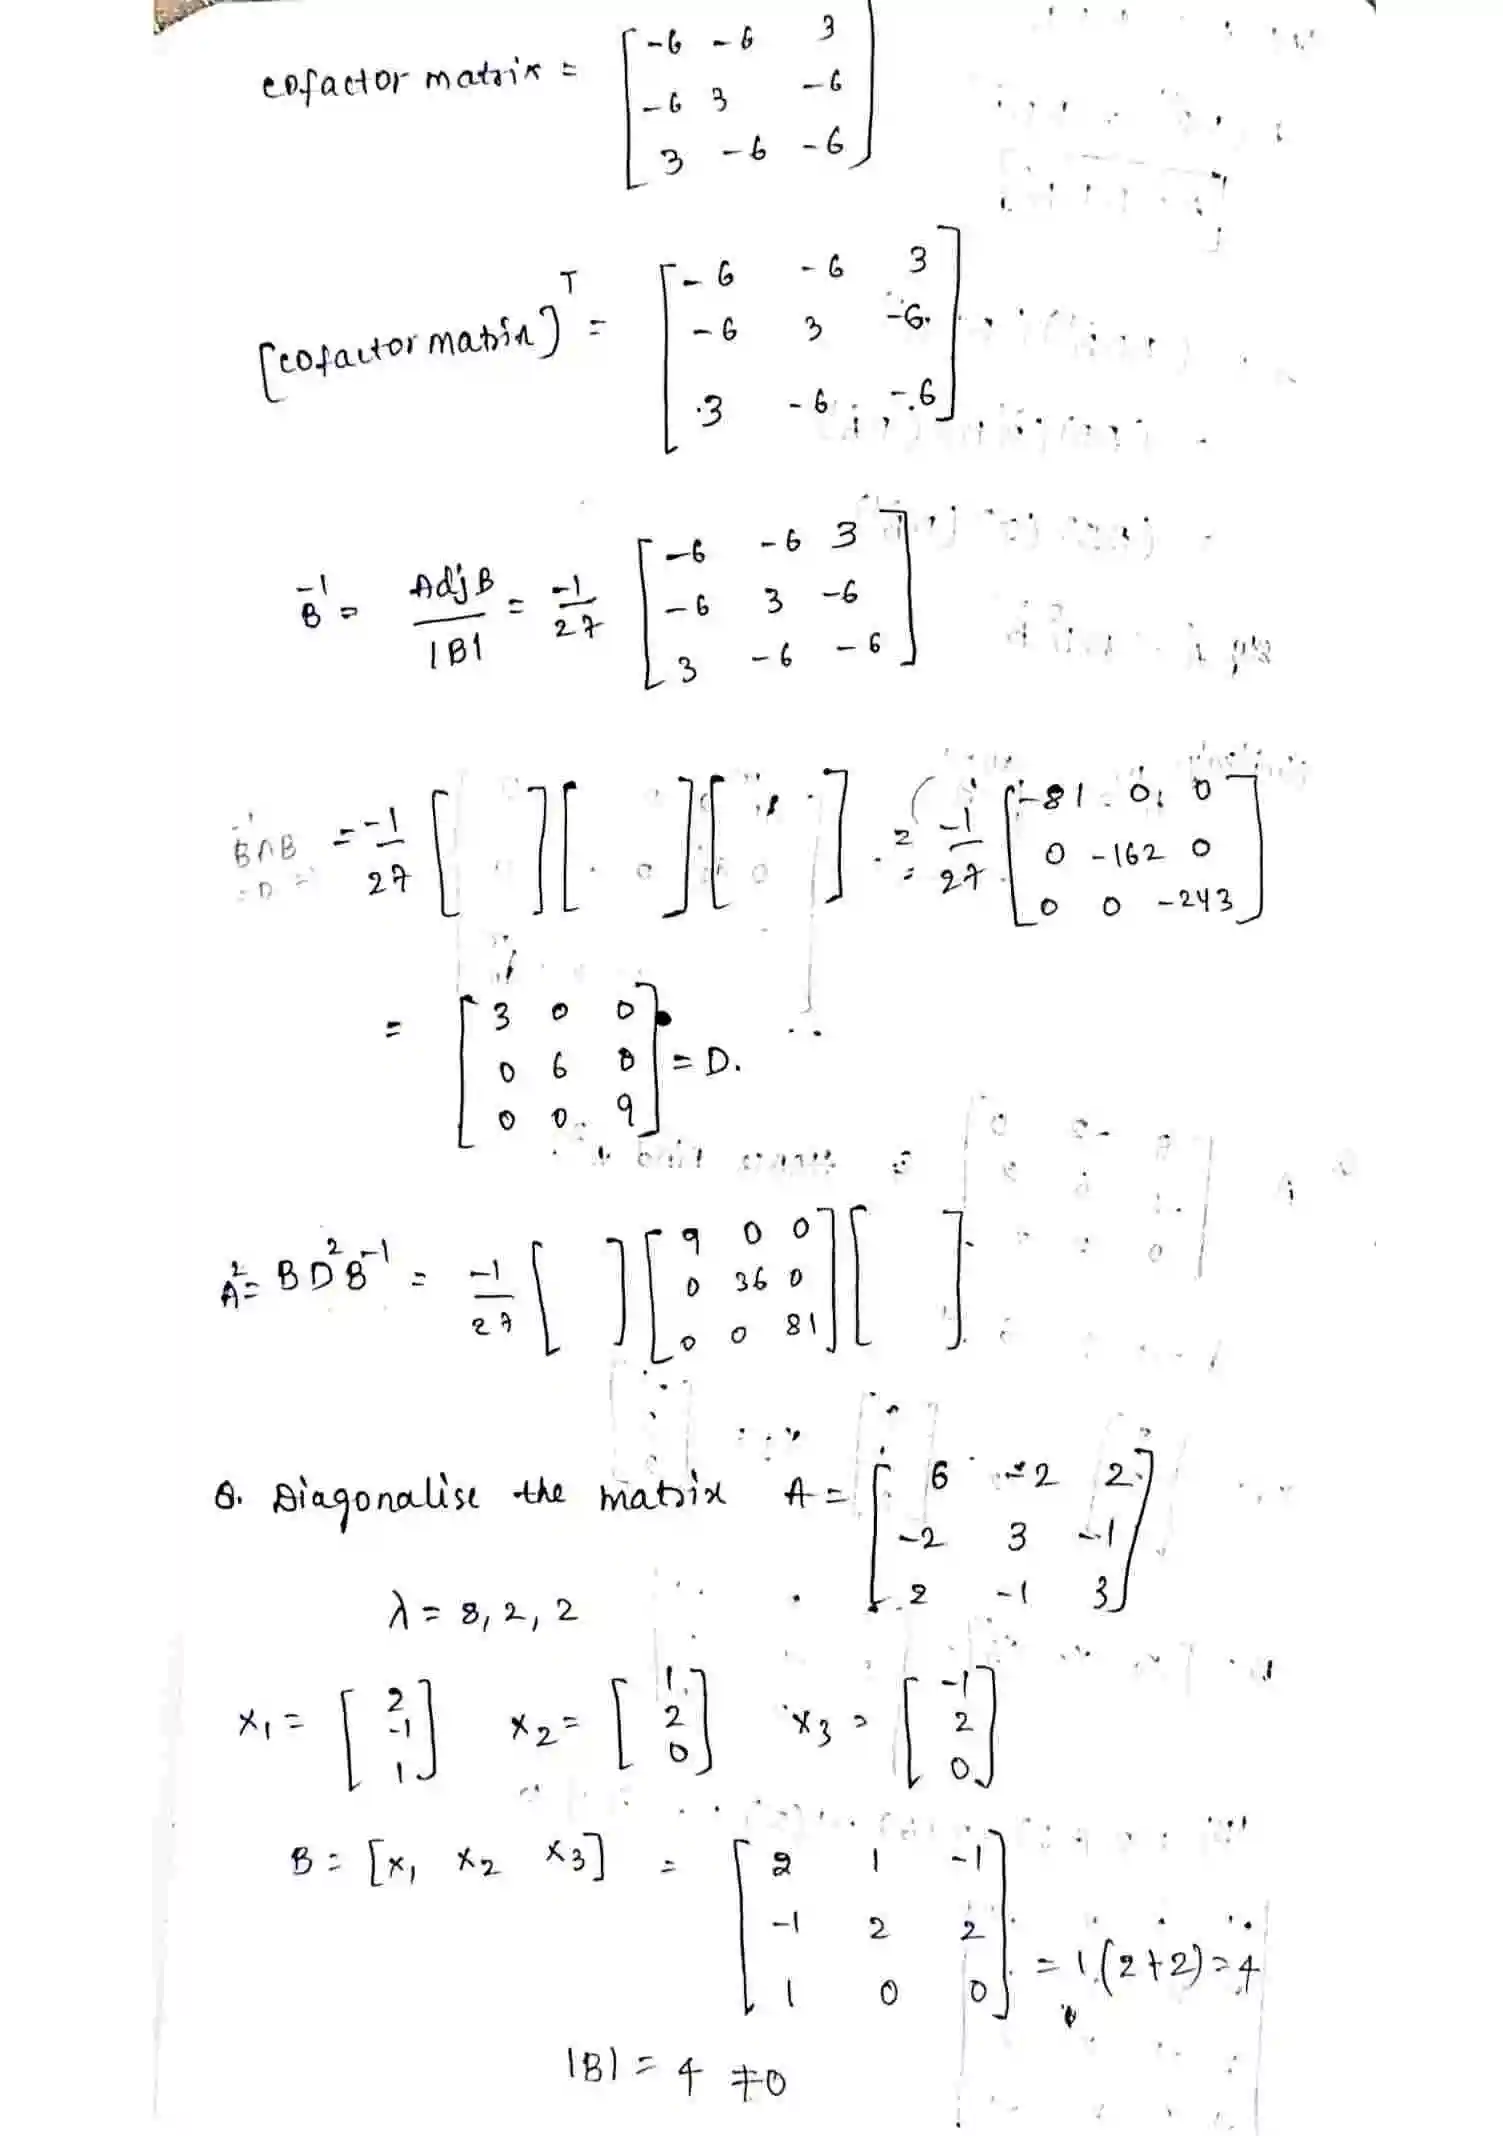 cofactor matrix = [ -6 -6 3
-6 3 -6
3 -6 -6 ]
[cofactor matrix]^T = [ -6 -6 3
-6 3 -6
3 -6 -6 ]
B^-1 = Adj B / |B| = -1/27 [ -6 -6 3
-6 3 -6
3 -6 -6 ]
B^-1 A B = -1/27 [ ] [ ] [ ] = -1/27 [ -81 0 0
= D
0 -162 0
0 0 -243 ]
= [ 3 0 0
0 6 0
0 0 9 ] = D.
A^2 = B D^2 B^-1 = -1/27 [ ] [ 9 0 0
0 36 0
0 0 81 ] [ ]
Q. Diagonalise the matrix A = [ 6 -2 2
-2 3 -1
2 -1 3 ]
λ = 8, 2, 2
x1 = [ 2
-1
1 ] x2 = [ 1
2
0 ] x3 = [ -1
2
0 ]
B = [x1 x2 x3] = [ 2 1 -1
-1 2 2
1 0 0 ] = 1(2+2) = 4
|B| = 4 ≠ 0